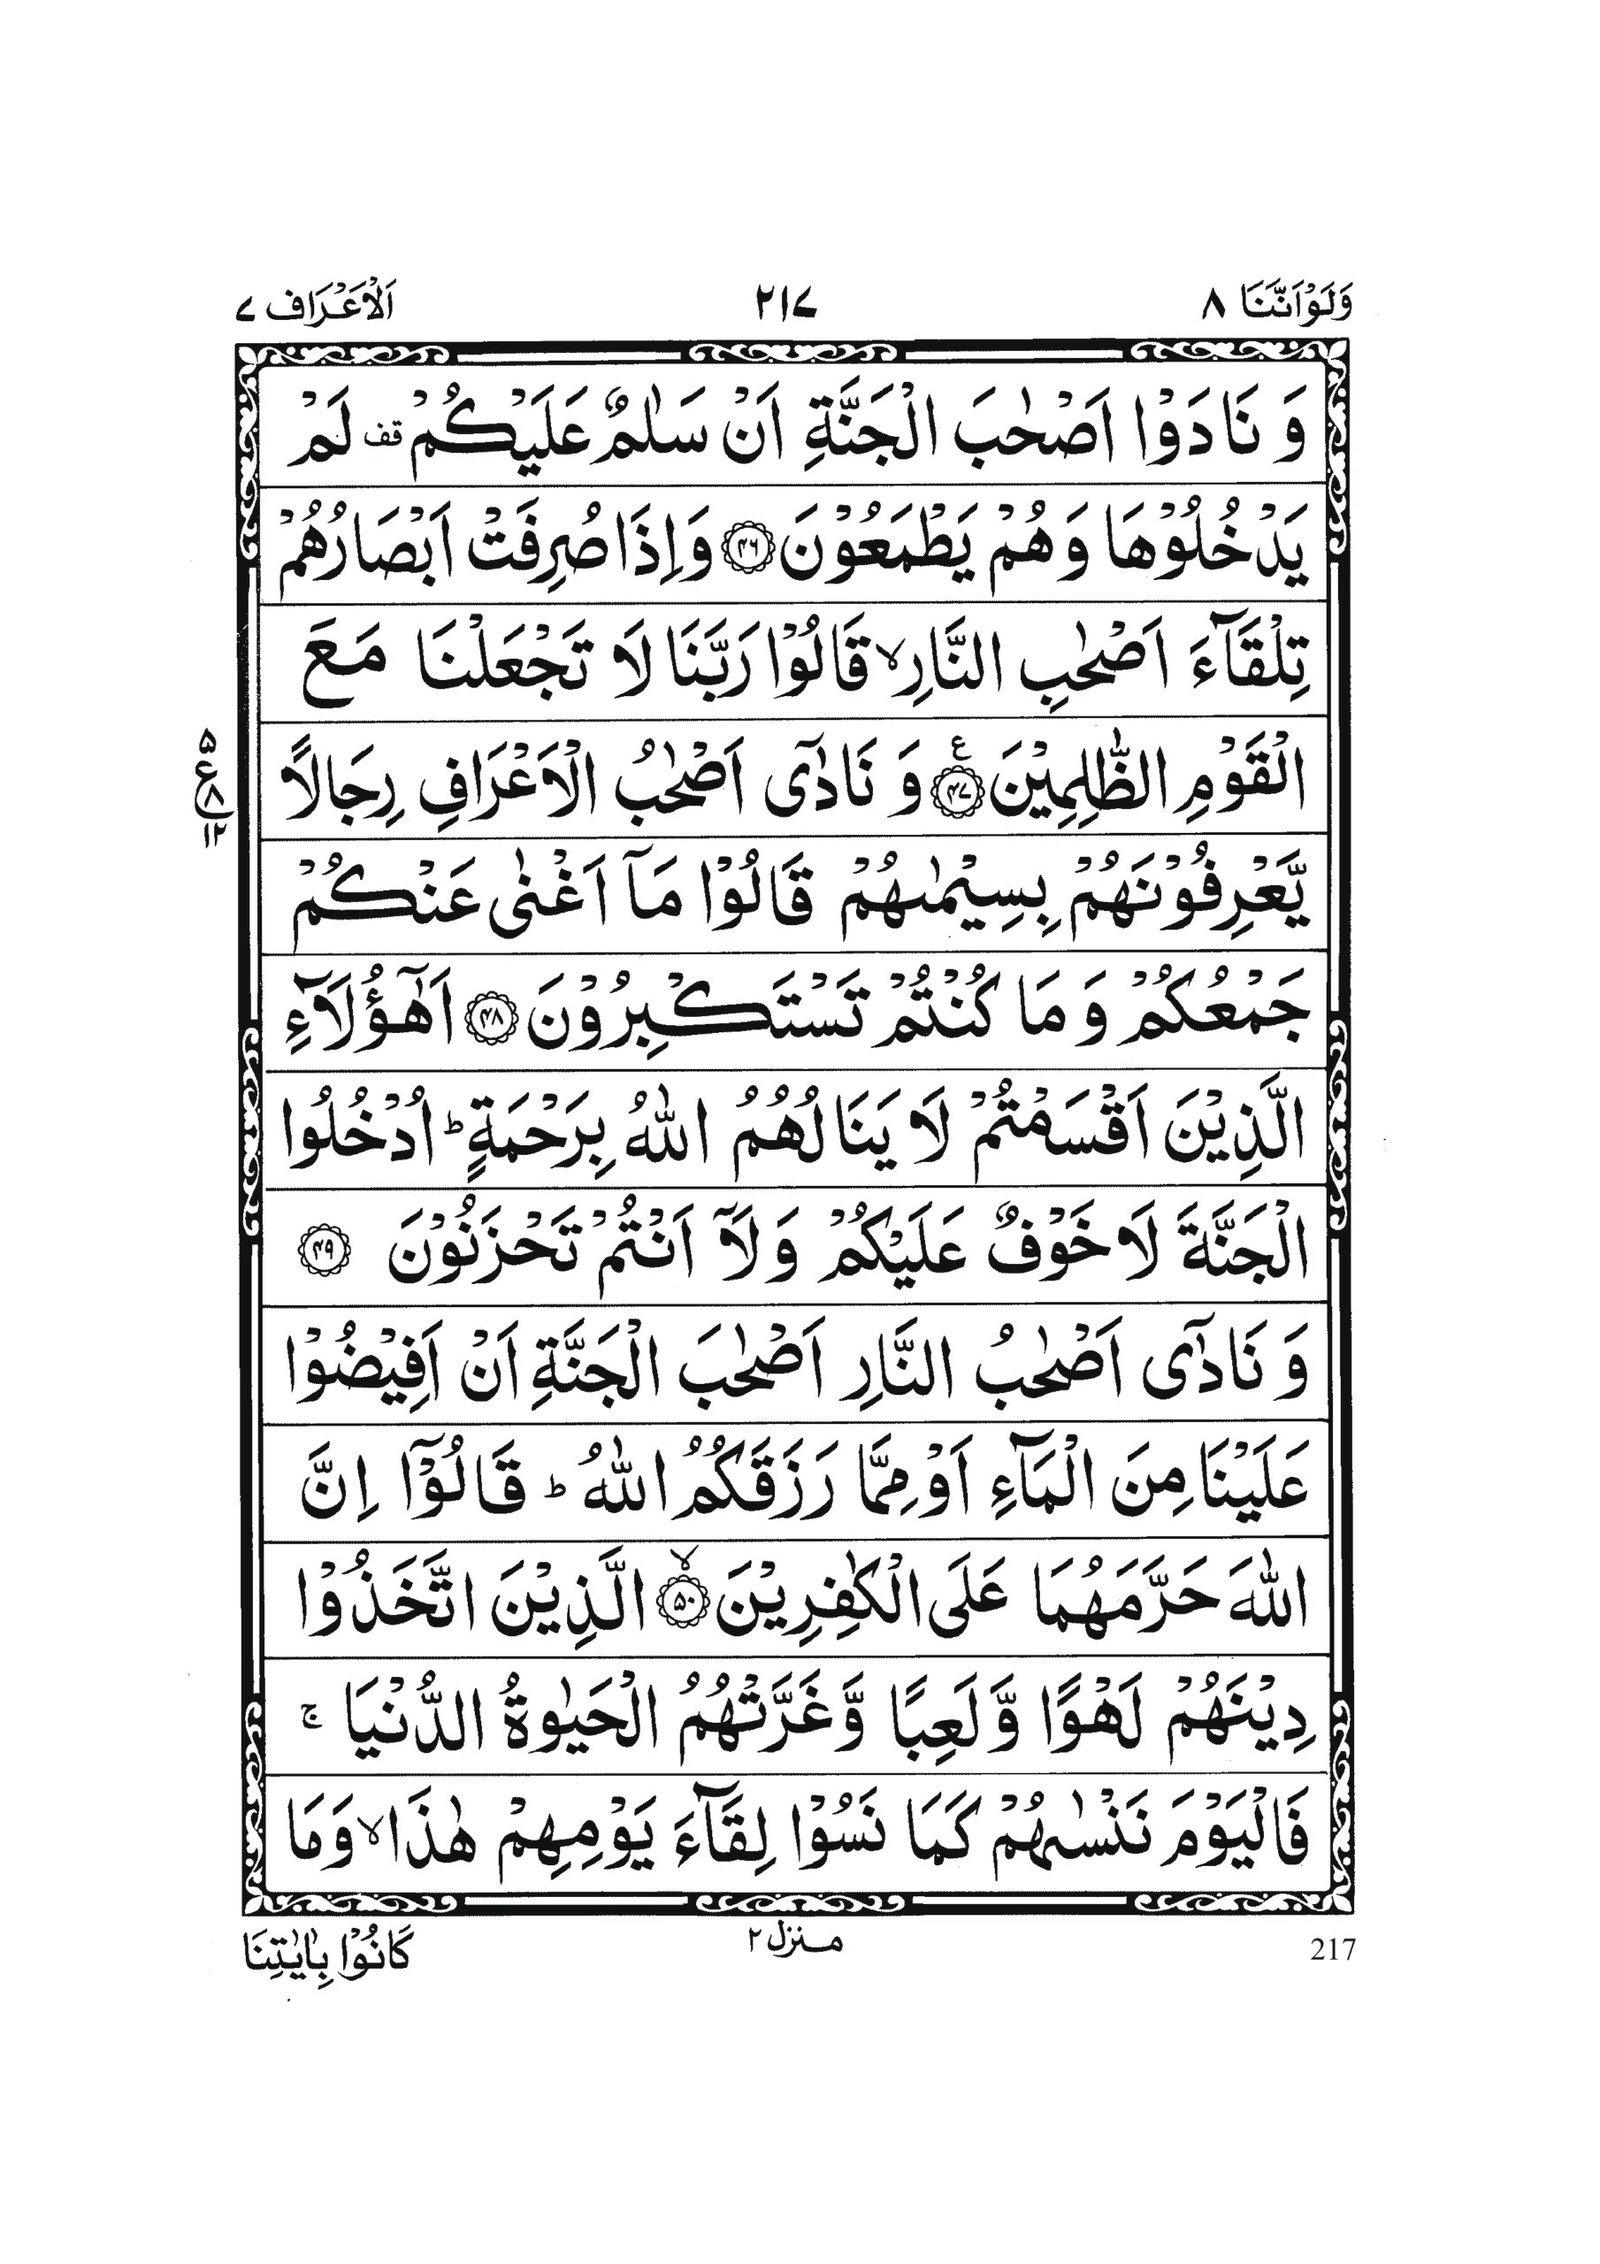 وَلَوْاَنَّنَا ۸ ۲۱۷ اَلْاَعْرَاف ۷
وَ نَادَوْا اَصْحٰبَ الْجَنَّةِ اَنْ سَلٰمٌ عَلَيْكُمْ قف لَمْ
يَدْخُلُوْهَا وَهُمْ يَطْمَعُوْنَ ﴿۴۶﴾ وَاِذَا صُرِفَتْ اَبْصَارُهُمْ
تِلْقَآءَ اَصْحٰبِ النَّارِ ۙ قَالُوْا رَبَّنَا لَا تَجْعَلْنَا مَعَ
الْقَوْمِ الظّٰلِمِيْنَ ﴿۴۷﴾ ع وَ نَادٰۤى اَصْحٰبُ الْاَعْرَافِ رِجَالًا
۵ ع ۸ ۱۲
يَّعْرِفُوْنَهُمْ بِسِيْمٰىهُمْ قَالُوْا مَاۤ اَغْنٰى عَنْكُمْ
جَمْعُكُمْ وَ مَا كُنْتُمْ تَسْتَكْبِرُوْنَ ﴿۴۸﴾ اَهٰۤؤُلَآءِ
الَّذِيْنَ اَقْسَمْتُمْ لَا يَنَالُهُمُ اللّٰهُ بِرَحْمَةٍ ؕ اُدْخُلُوا
الْجَنَّةَ لَا خَوْفٌ عَلَيْكُمْ وَ لَاۤ اَنْتُمْ تَحْزَنُوْنَ ﴿۴۹﴾
وَ نَادٰۤى اَصْحٰبُ النَّارِ اَصْحٰبَ الْجَنَّةِ اَنْ اَفِيْضُوْا
عَلَيْنَا مِنَ الْمَآءِ اَوْ مِمَّا رَزَقَكُمُ اللّٰهُ ؕ قَالُوْۤا اِنَّ
اللّٰهَ حَرَّمَهُمَا عَلَى الْكٰفِرِيْنَ ﴿۵۰﴾ ۙ الَّذِيْنَ اتَّخَذُوْا
دِيْنَهُمْ لَهْوًا وَّ لَعِبًا وَّ غَرَّتْهُمُ الْحَيٰوةُ الدُّنْيَا ۚ
فَالْيَوْمَ نَنْسٰىهُمْ كَمَا نَسُوْا لِقَآءَ يَوْمِهِمْ هٰذَا ۙ وَمَا
217 منزل ۲ كَانُوْا بِاٰيٰتِنَا